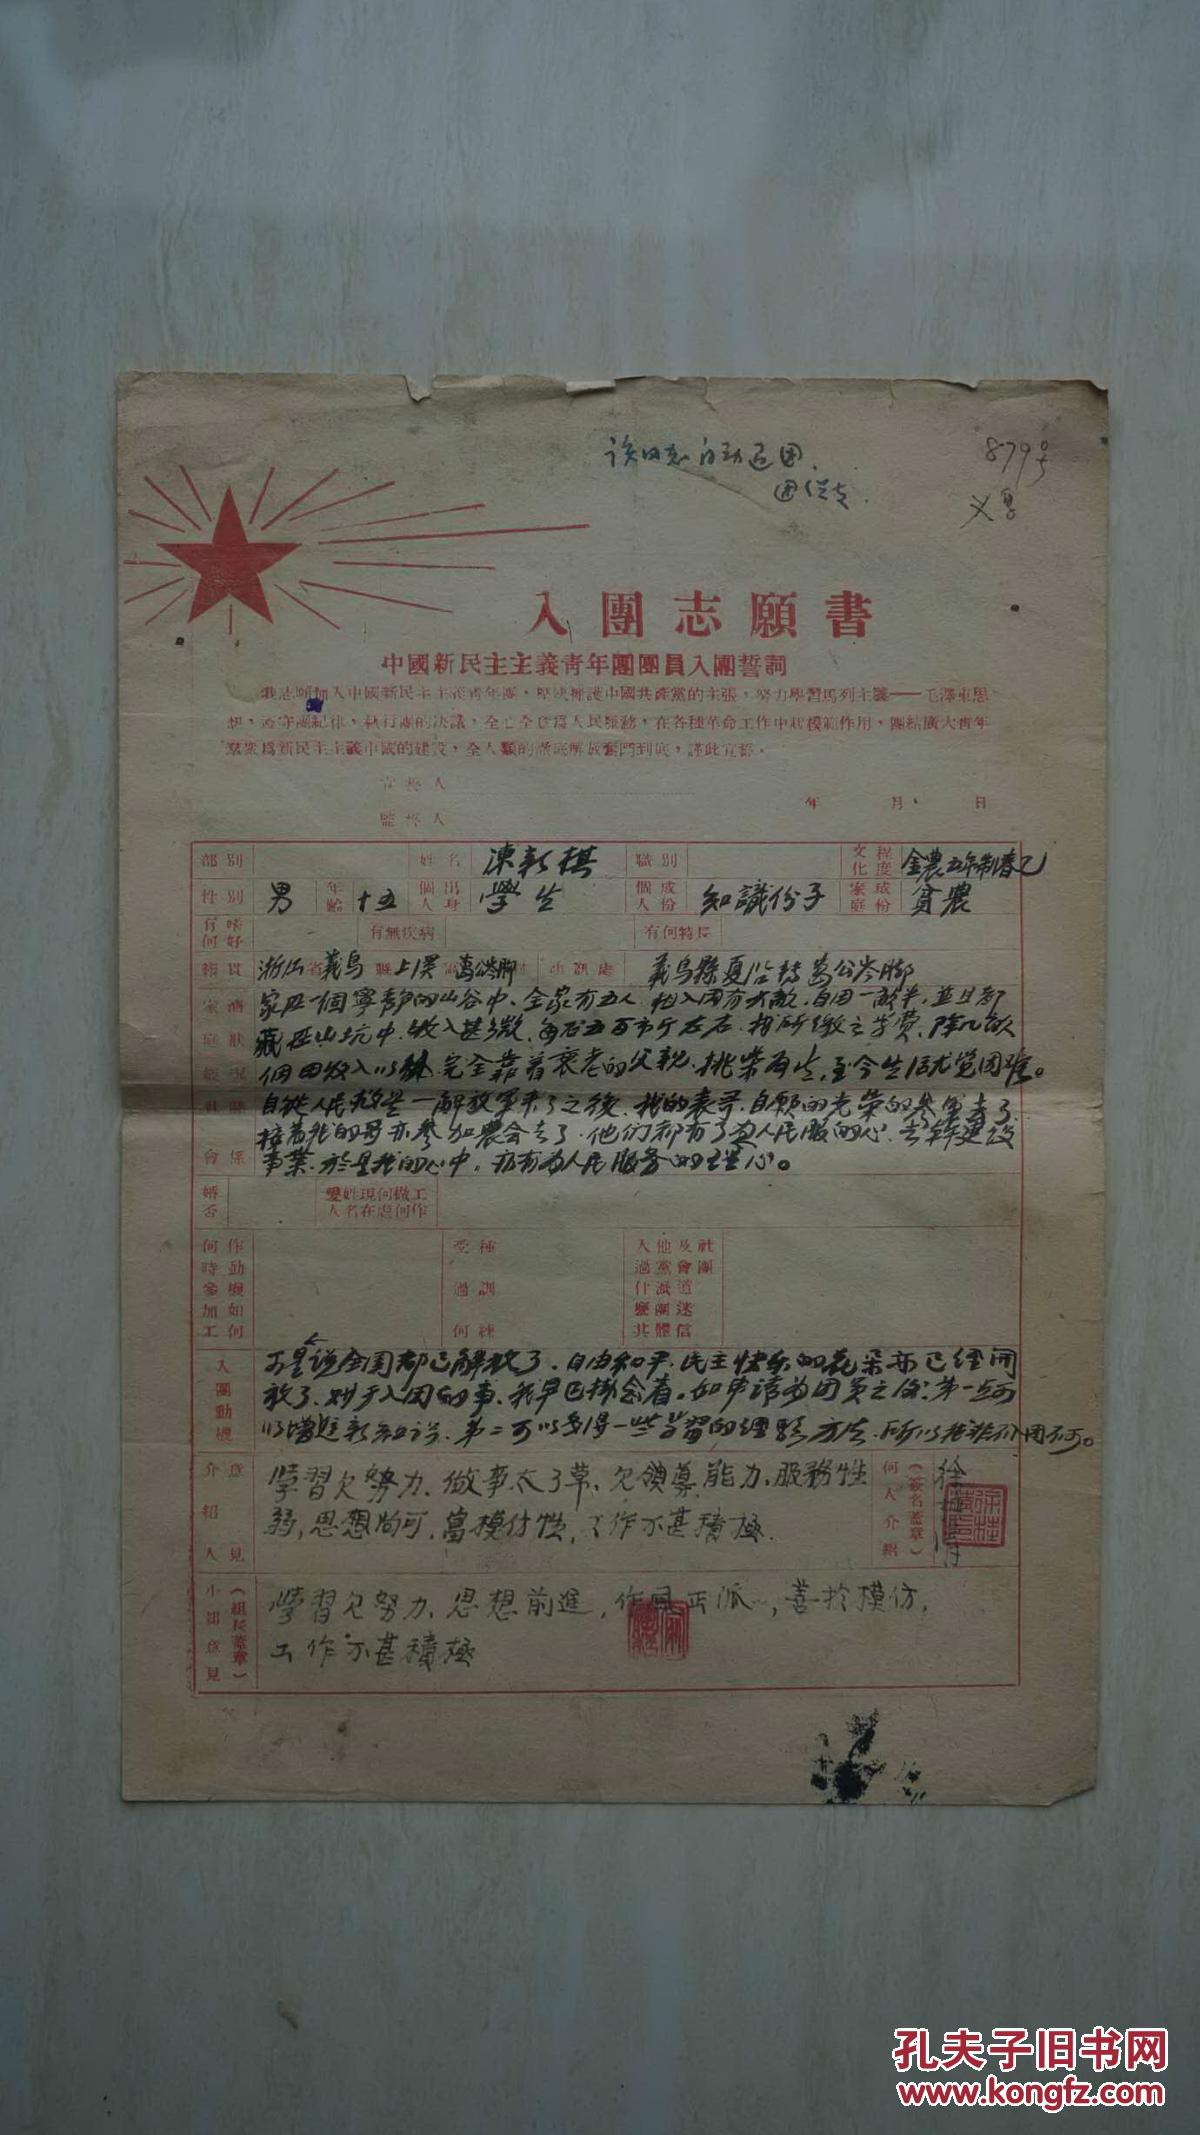 该同志自动退团.
团总支.
879号
义乌
入團志願書
中國新民主主義青年團團員入團誓詞
我志願加入中國新民主主義青年團,堅決擁護中國共產黨的主張,努力學習馬列主義——毛澤東思
想,遵守團紀律,執行團的決議,全心全意爲人民服務,在各種革命工作中起模範作用,團結廣大青年
羣衆爲新民主主義中國的建設,全人類的澈底解放奮鬥到底,謹此宣誓。
宣誓人
年 月 日
監誓人
部別 姓名 陳新棋 職別 文化程度 金農五年制春乙
性別 男 年齡 十五 個人出身 學生 個人成份 知識份子 家庭成份 貧農
有何嗜好 有無疾病 有何特長
籍貫 浙江省義烏縣上溪區 村 通訊處 義烏縣夏
家庭經濟狀現 家在一個寧靜的山谷中、全家有五人
藏在山坑中、收入甚微、每石五百市斤左右.
個田收入以外 完全靠着衰老的父親、挑柴 至今生活尤覺困难。
社會關係 自從人民救星—解放軍来了之後、我的表哥、自願的光荣的參軍去了
接着我的哥亦參加農会去了、他们都有了為人民服的心、去幹建設
事業、於是我的心中、亦有為人民服务的 心。
婚否 愛人姓名現在何處做何工作
何時參加工作動機如何 受過何種訓練 入過什麼黨派及其他社會團體道迷信
入團動機 可是说全国都已解放了、自由和平、民主快乐的花朵亦已經開
放了、对于入团的事、我早已掛念着。如申請為团员之後、第一点可
以增進新知识、第二可以多得一些学習的经驗方法、所以我非入团不可。
介紹人意見 學習欠努力、做事太了草、欠領導能力、服務性
弱,思想尚可,富模仿性,工作不甚積極.
何人介紹(簽名蓋章) 徐
小組意見(組長蓋章) 學習欠努力、思想前進,作風正派,善於模仿,
工作不甚積極
孔夫子旧书网
www.kongfz.com